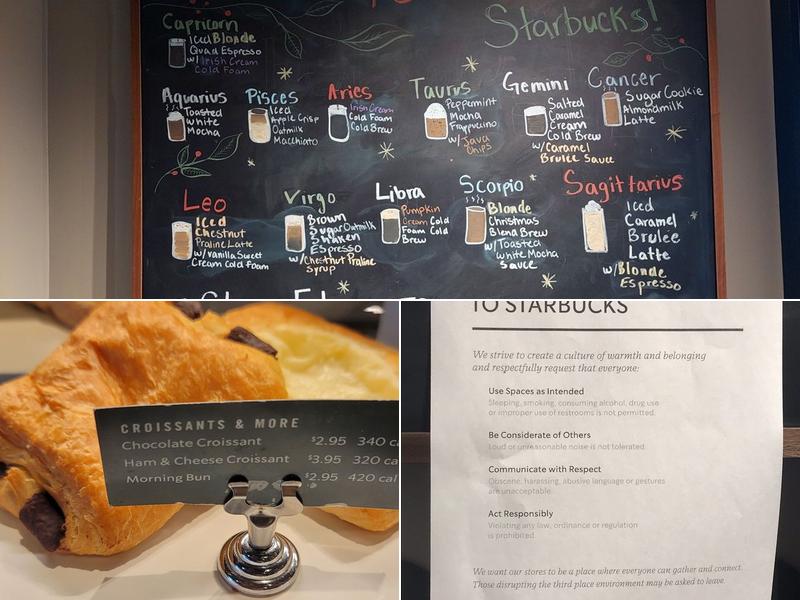 Starbucks!
Capricorn
Iced Blonde
Quad Espresso
w/ Irish Cream
Cold Foam
Aquarius
Toasted
White
Mocha
Pisces
Iced
Apple Crisp
Oatmilk
Macchiato
Aries
Irish Cream
Cold Foam
Cold Brew
Taurus
Peppermint
Mocha
Frappuccino
w/ Java
Chips
Gemini
Salted
Caramel
Cream
Cold Brew
w/ Caramel
Brulee Sauce
Cancer
Sugar Cookie
Almondmilk
Latte
Leo
Iced
Chestnut
Praline Latte
w/ Vanilla Sweet
Cream Cold Foam
Virgo
Brown
Sugar Oatmilk
Shaken
Espresso
w/ Chestnut Praline
Syrup
Libra
Pumpkin
Cream Cold
Foam Cold
Brew
Scorpio
Blonde
Christmas
Blend Brew
w/ Toasted
White Mocha
Sauce
Sagittarius
Iced
Caramel
Brulee
Latte
w/ Blonde
Espresso
CROISSANTS & MORE
Chocolate Croissant $2.95 340 ca
Ham & Cheese Croissant $3.95 320 cal
Morning Bun $2.95 420 cal
TO STARBUCKS
We strive to create a culture of warmth and belonging
and respectfully request that everyone:
Use Spaces as Intended
Sleeping, smoking, consuming alcohol, drug use
or improper use of restrooms is not permitted.
Be Considerate of Others
Loud or unreasonable noise is not tolerated.
Communicate with Respect
Obscene, harassing, abusive language or gestures
are unacceptable.
Act Responsibly
Violating any law, ordinance or regulation
is prohibited.
We want our stores to be a place where everyone can gather and connect.
Those disrupting the third place environment may be asked to leave.